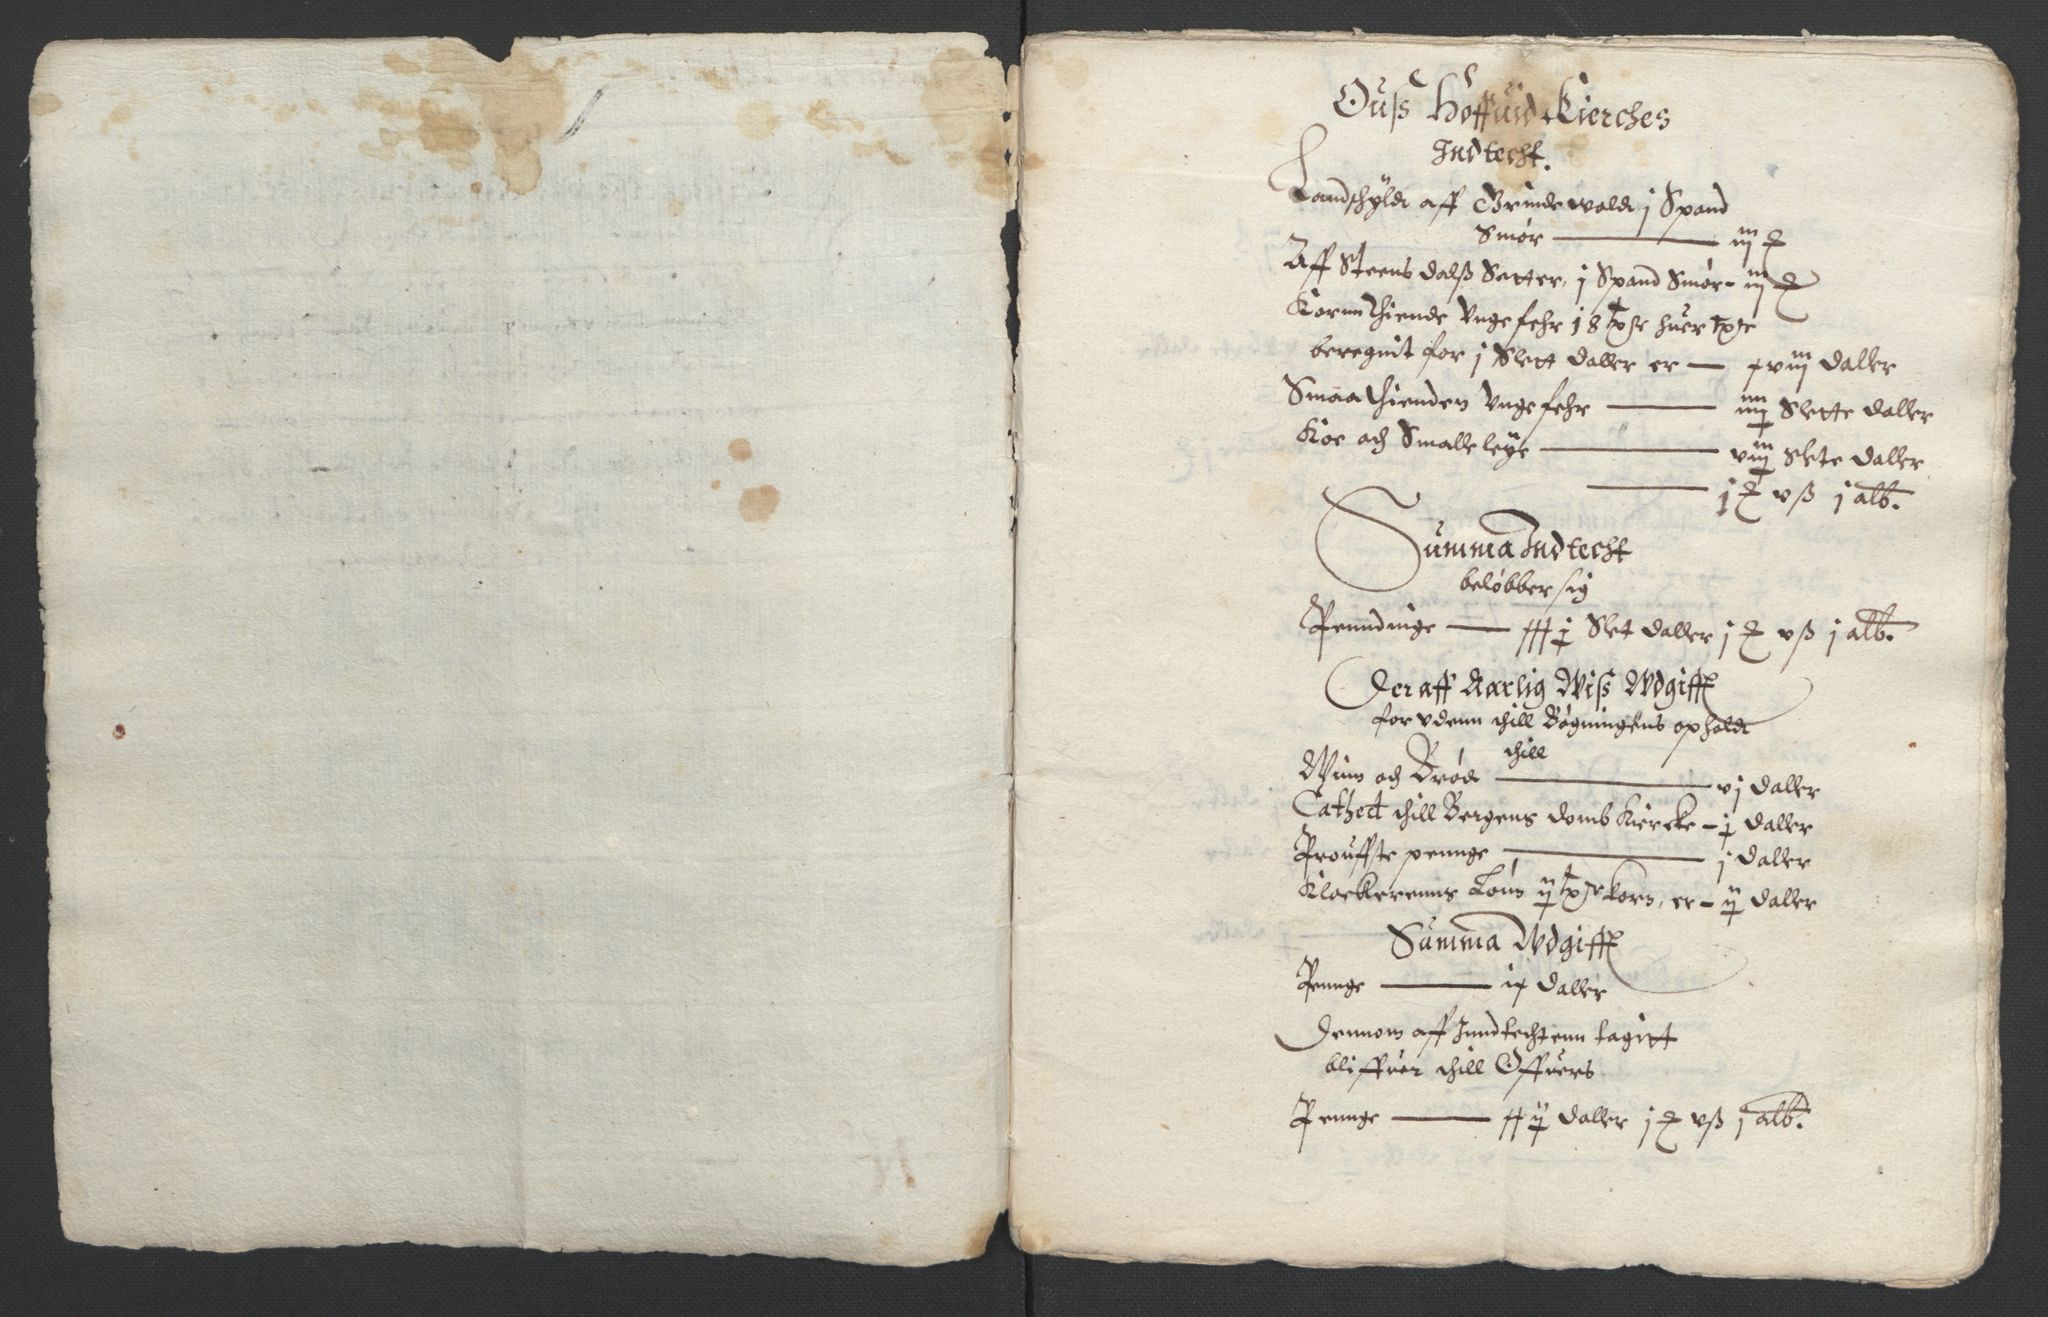 Ouss Hoffuid Kierches
Indtecht.
Landschyldt aff Grindevoldt j Spand
Smør — iij ⅌
Aff Steens dalß Setter, j Spand Smør – iij ⅌
Kornn thiende Ungefehr 18 tpr huer tpr
beregnit for j Slett daller er — xviij daller
Smaa thienden Ungefehr — iiij Slette daller
Koe och Smalle leye — viij Slete daller
— j ⅌ v ß j alb.
Summa Indtecht
beløbber sig
Penndinge — xxxj Slet daller j ⅌ v ß j alb.
Der aff Aarlig Wiss Wdgifft
for vdenn thill Bøgningens opholdt
thill
Wiin och Brød — vj daller
Cathed: thill Bergens domb Kiercke – j daller
Prouffste pennge — j daller
Klockerenns Løn ij tpr korn, er – ij daller
Summa Wdgifft
Pennge — ix daller
Dennom aff Inndtechtenn tagitt
bliffuer thill Offuers
Pennge — xxij daller j ⅌ v ß j alb.